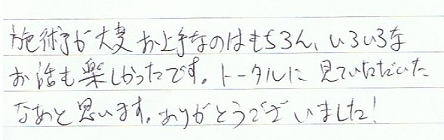 施術が大変お上手なのはもちろん、いろいろな
お話も楽しかったです。トータルに見ていただいた
なあと思います。ありがとうございました!